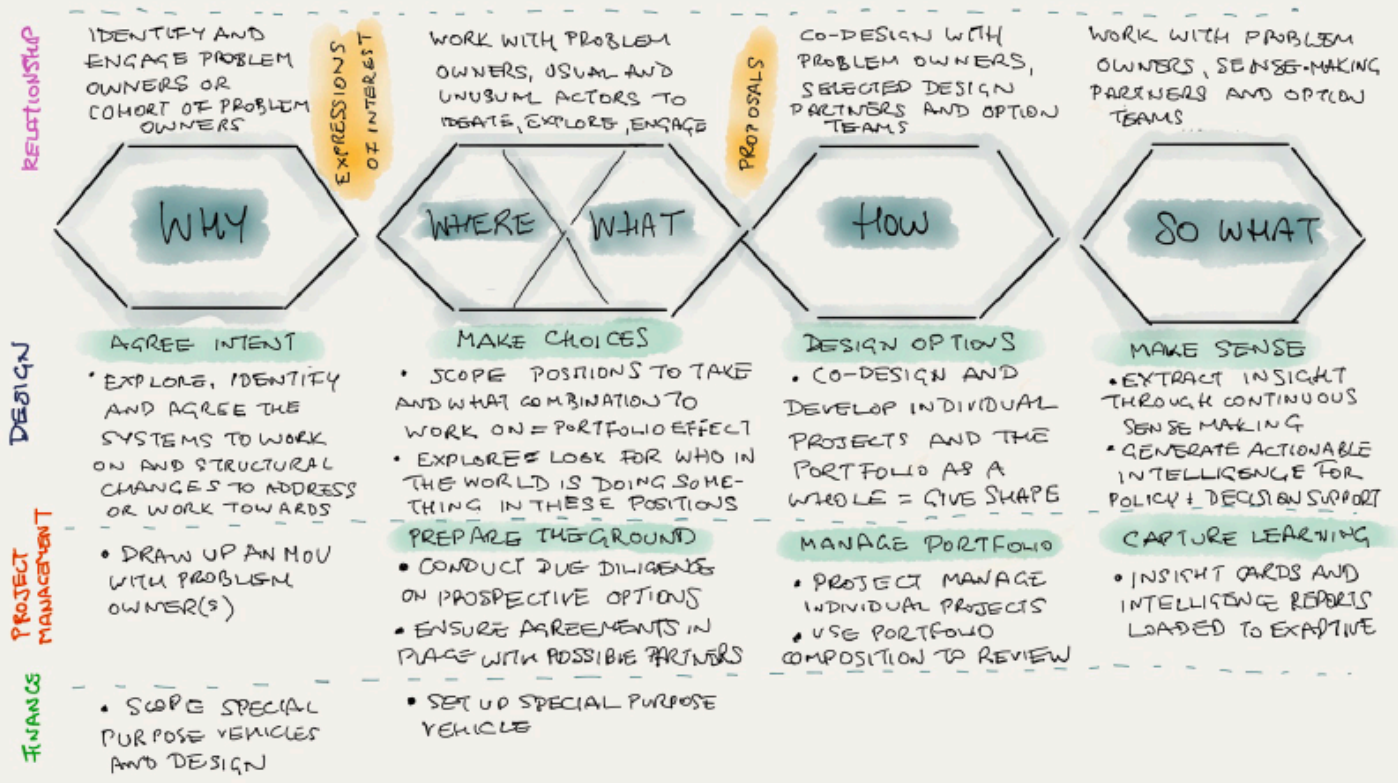 RELATIONSHIP
IDENTIFY AND
ENGAGE PROBLEM
OWNERS OR
COHORT OF PROBLEM
OWNERS
EXPRESSIONS
OF INTEREST
WORK WITH PROBLEM
OWNERS, USUAL AND
UNUSUAL ACTORS TO
IDEATE, EXPLORE, ENGAGE
PROPOSALS
CO-DESIGN WITH
PROBLEM OWNERS,
SELECTED DESIGN
PARTNERS AND OPTION
TEAMS
WORK WITH PROBLEM
OWNERS, SENSE-MAKING
PARTNERS AND OPTION
TEAMS
WHY
WHERE
WHAT
HOW
SO WHAT
DESIGN
AGREE INTENT
• EXPLORE, IDENTIFY
AND AGREE THE
SYSTEMS TO WORK
ON AND STRUCTURAL
CHANGES TO ADDRESS
OR WORK TOWARDS
MAKE CHOICES
• SCOPE POSITIONS TO TAKE
AND WHAT COMBINATION TO
WORK ON = PORTFOLIO EFFECT
• EXPLORE = LOOK FOR WHO IN
THE WORLD IS DOING SOME-
THING IN THESE POSITIONS
DESIGN OPTIONS
• CO-DESIGN AND
DEVELOP INDIVIDUAL
PROJECTS AND THE
PORTFOLIO AS A
WHOLE = GIVE SHAPE
MAKE SENSE
• EXTRACT INSIGHT
THROUGH CONTINUOUS
SENSE MAKING
• GENERATE ACTIONABLE
INTELLIGENCE FOR
POLICY + DECISION SUPPORT
PROJECT
MANAGEMENT
• DRAW UP AN MOU
WITH PROBLEM
OWNER(S)
PREPARE THE GROUND
• CONDUCT DUE DILIGENCE
ON PROSPECTIVE OPTIONS
• ENSURE AGREEMENTS IN
PLACE WITH POSSIBLE PARTNERS
MANAGE PORTFOLIO
• PROJECT MANAGE
INDIVIDUAL PROJECTS
• USE PORTFOLIO
COMPOSITION TO REVIEW
CAPTURE LEARNING
• INSIGHT CARDS AND
INTELLIGENCE REPORTS
LOADED TO EXAPTIVE
FINANCE
• SCOPE SPECIAL
PURPOSE VEHICLES
AND DESIGN
• SET UP SPECIAL PURPOSE
VEHICLE